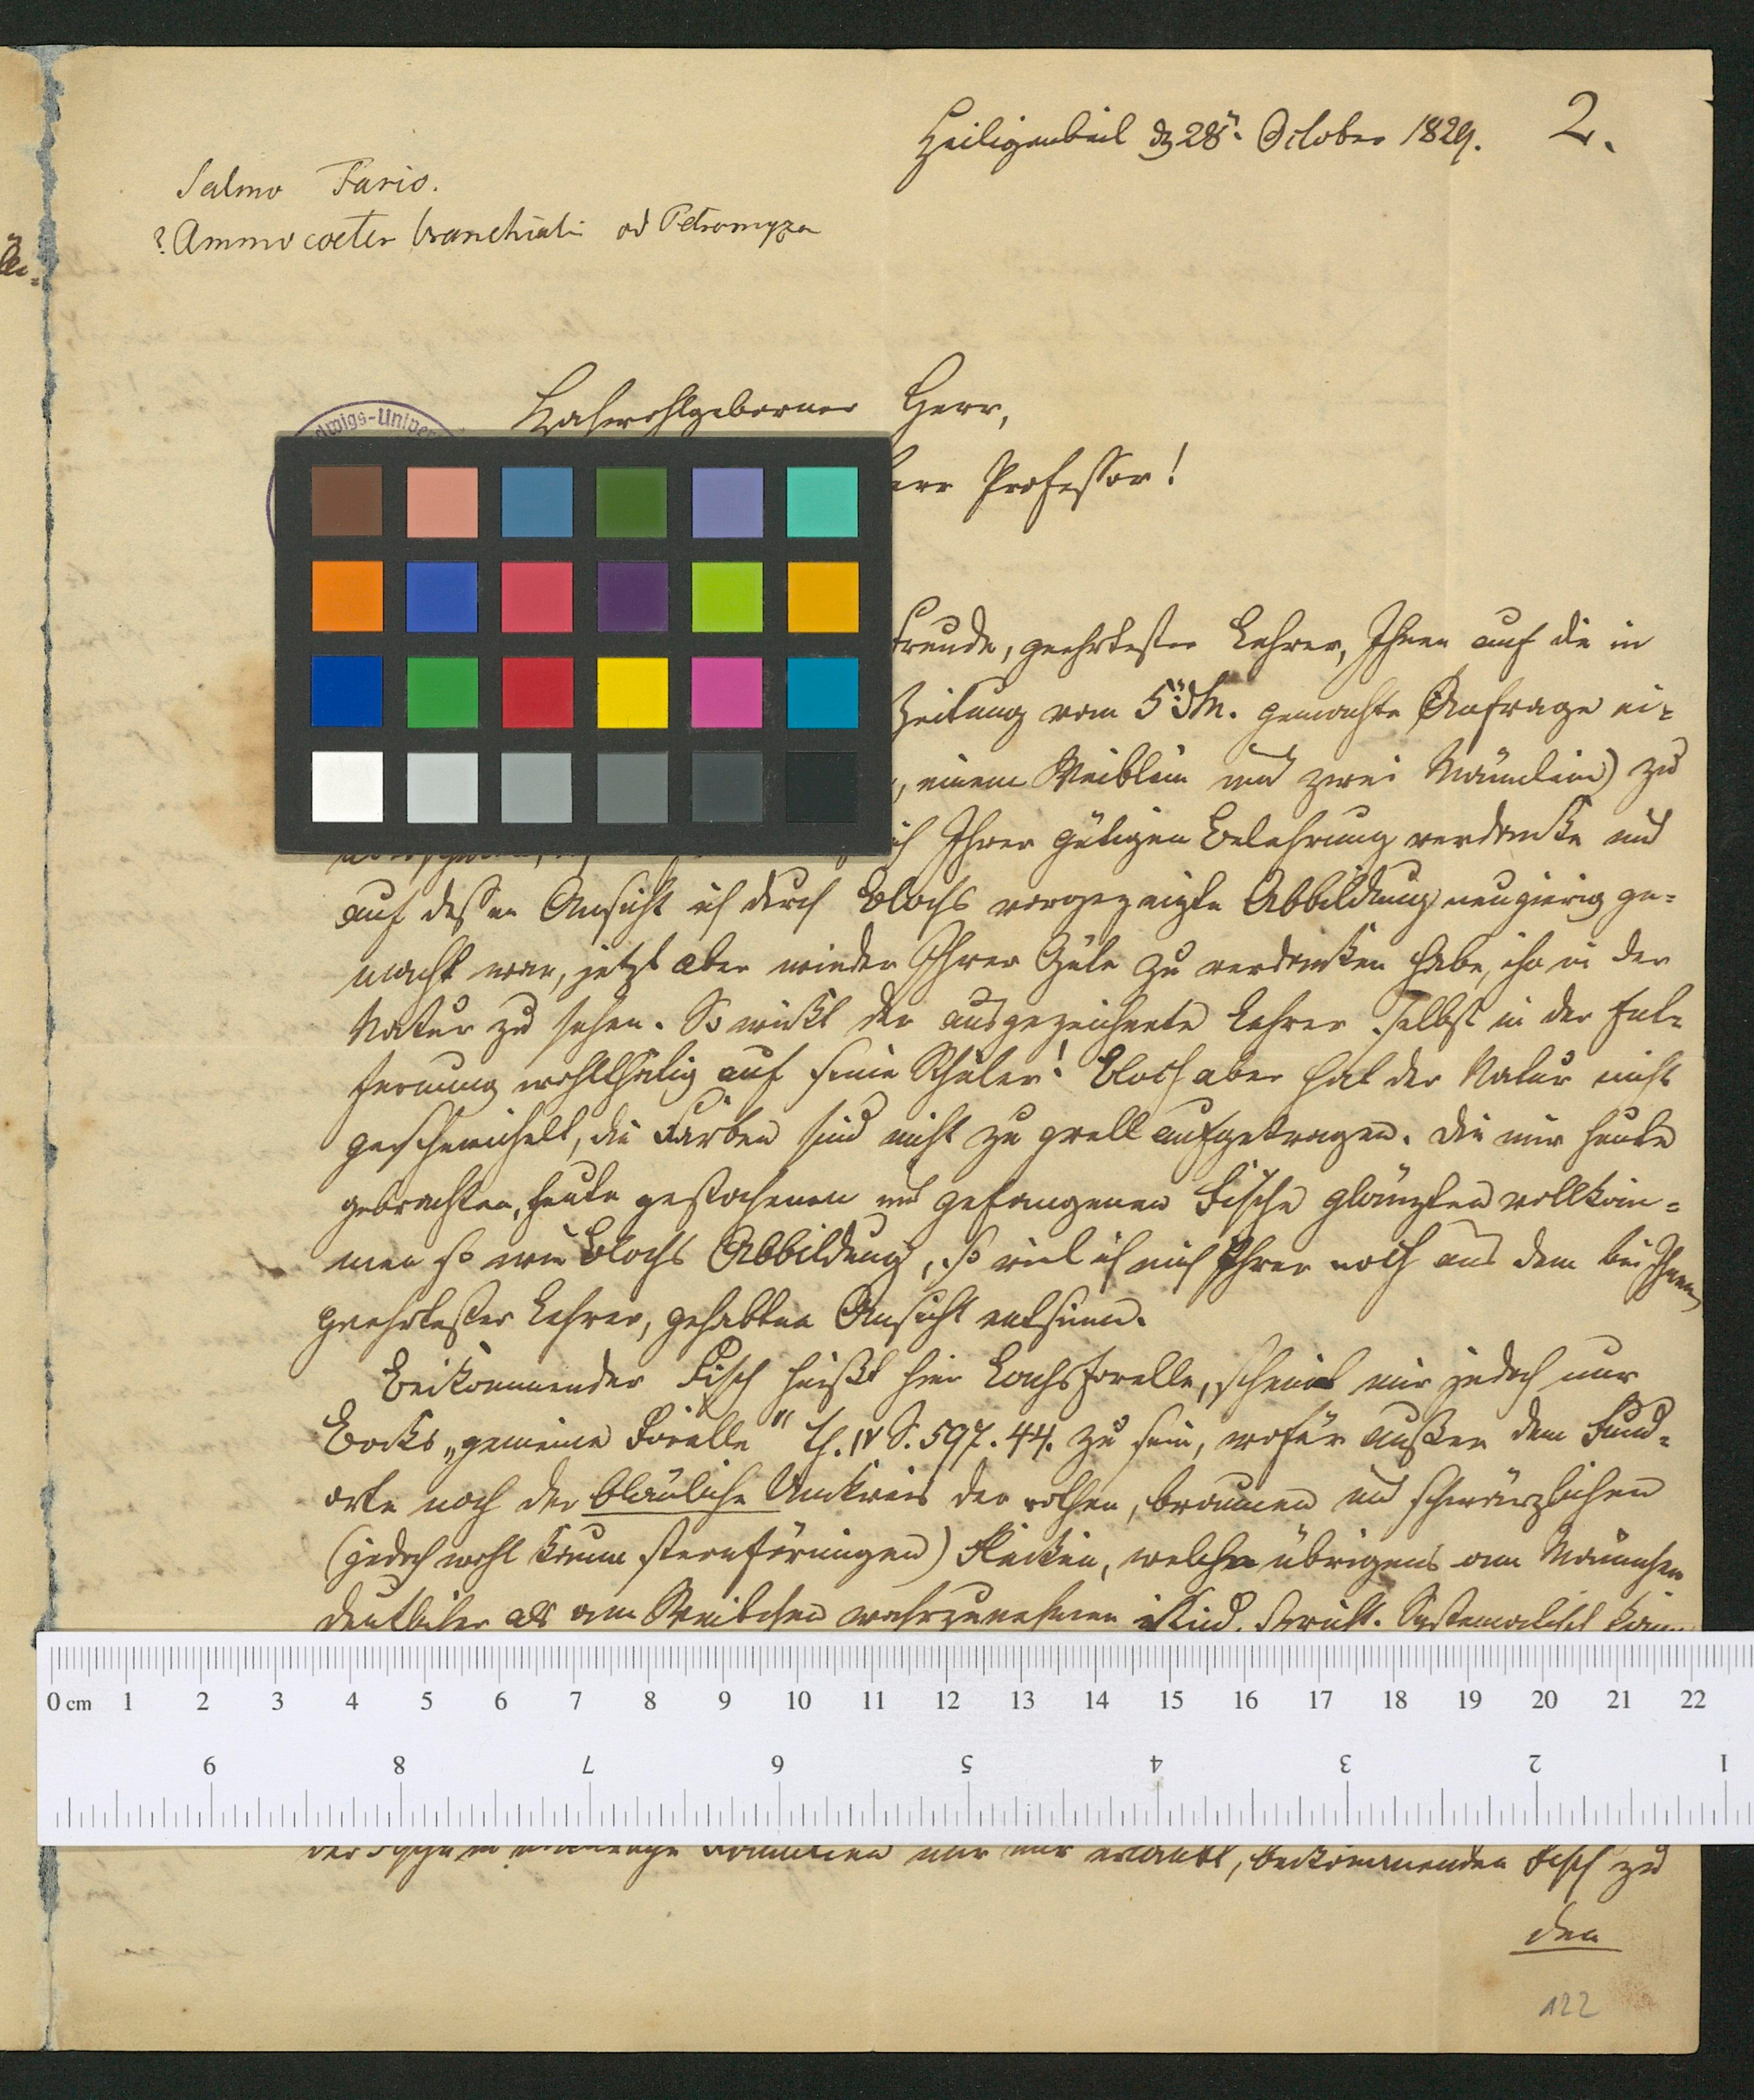 2.
Heiligenbeil d. 28n. October 1829.
Salmo Fario.
? Ammocoeter branchialis od Petromyzon
Hochwohlgeborner Herr,
Herr Professor!
dwigs-Univer
Freude, geehrtester Lehrer, Ihnen auf die in
Zeitung vom 5n d. M. gemachte Anfrage ei-
, einem Weiblein und zwei Männlein) zu
ich Ihrer gütigen Belehrung verdanke und
auf dessen Ansicht ich durch Blochs vorgezeigte Abbildung neugierig ge-
macht war, jetzt aber wieder Ihrer Güte zu verdanken habe, ihn in der
Natur zu sehen. So wirkt der ausgezeichnete Lehrer selbst in der Ent-
fernung wohlthätig auf seine Schüler! Bloch aber hat der Natur nicht
geschmeichelt, die Farben sind nicht zu grell aufgetragen. Die mir heute
gebrachten, heute gestochenen und gefangenen Fische glänzten vollkom-
men so wie Blochs Abbildung, so viel ich mich Ihrer noch aus dem bei Ihnen,
geehrtester Lehrer, gehabten Ansicht entsinne.
Beikommender Fisch heißt hier Lachsforelle, scheint mir jedoch nur
Bocks „gemeine Forelle" Th. IV S. 597. 44. zu sein, wofür außer dem Fund-
orte noch der bläuliche Umkreis der rothen, braunen und schwärzlichen
(jedoch wohl kaum sternförmigen) Flecken, welche übrigens am Männchen
deutlicher als am Weibchen wahrzunehmen sind, spricht. Systematisch kann
0 cm 1 2 3 4 5 6 7 8 9 10 11 12 13 14 15 16 17 18 19 20 21 22
9 8 7 6 5 4 3 2 1
Familien nur mir erlaubt, beikommenden Fisch zu
den
122